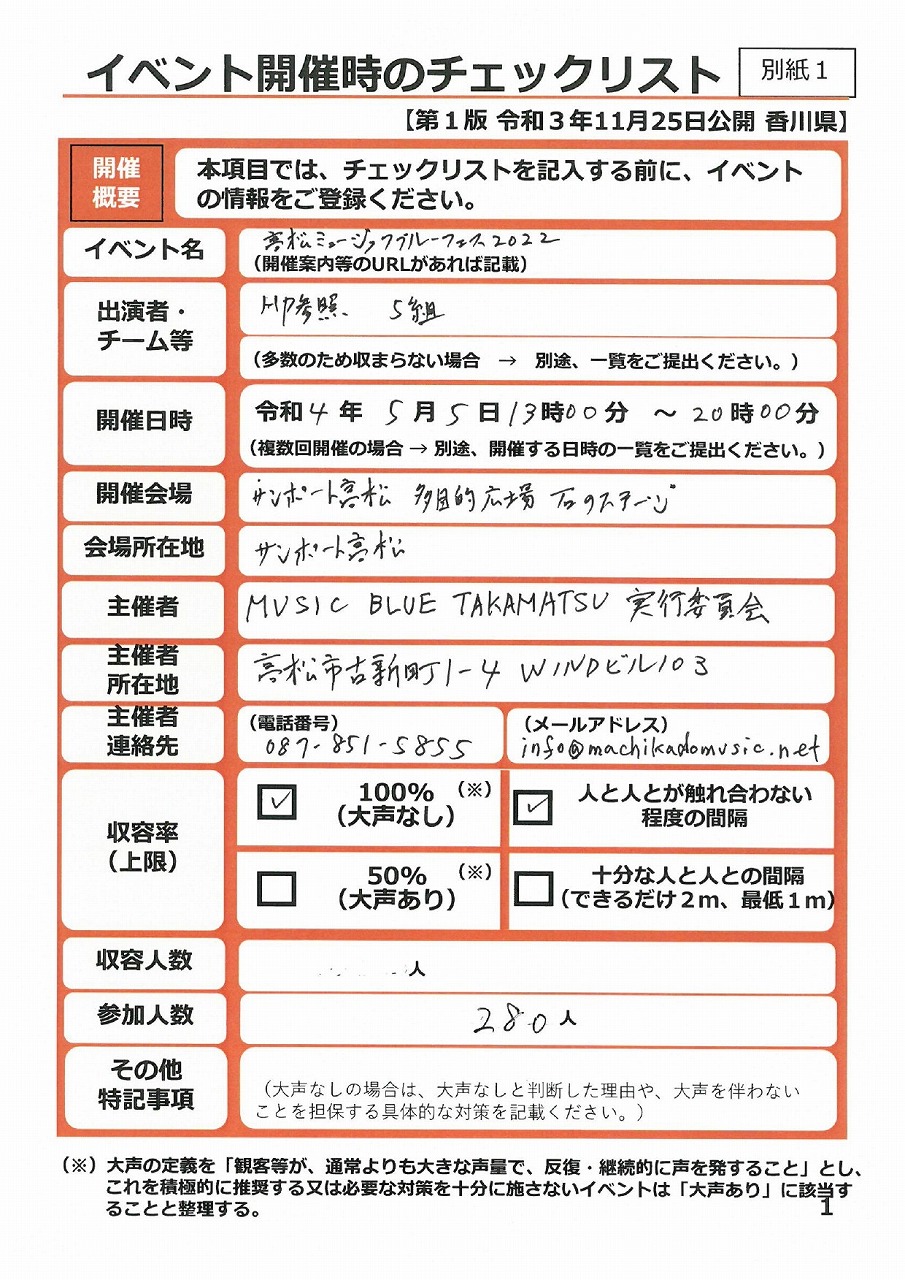 イベント開催時のチェックリスト
別紙１
【第１版 令和３年11月25日公開 香川県】
開催
概要
本項目では、チェックリストを記入する前に、イベント
の情報をご登録ください。
イベント名
高松ミュージックブルーフェス2022
（開催案内等のURLがあれば記載）
出演者・
チーム等
HP参照、 5組
（多数のため収まらない場合 → 別途、一覧をご提出ください。）
開催日時
令和4年 5月5日13時00分 ～20時00分
（複数回開催の場合→別途、開催する日時の一覧をご提出ください。）
開催会場
サンポート高松 多目的広場 石のステージ
会場所在地
サンポート高松
主催者
MUSIC BLUE TAKAMATSU 実行委員会
主催者
所在地
高松市古新町1-4 WINDビル103
主催者
連絡先
（電話番号）
087-851-5855
（メールアドレス）
info@machikadomusic.net
収容率
（上限）
100% （※）
（大声なし）
人と人とが触れ合わない
程度の間隔
50% （※）
（大声あり）
十分な人と人との間隔
（できるだけ２ｍ、最低１ｍ）
収容人数
人
参加人数
280人
その他
特記事項
（大声なしの場合は、大声なしと判断した理由や、大声を伴わない
ことを担保する具体的な対策を記載ください。）
（※）大声の定義を「観客等が、通常よりも大きな声量で、反復・継続的に声を発すること」とし、
これを積極的に推奨する又は必要な対策を十分に施さないイベントは「大声あり」に該当す
ることと整理する。
1